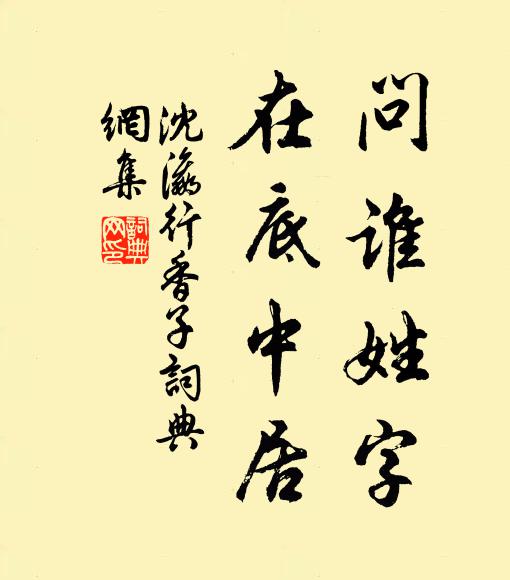 问谁姓字
在底中居
沈瀛行香子詞典
網集
詞典
网印